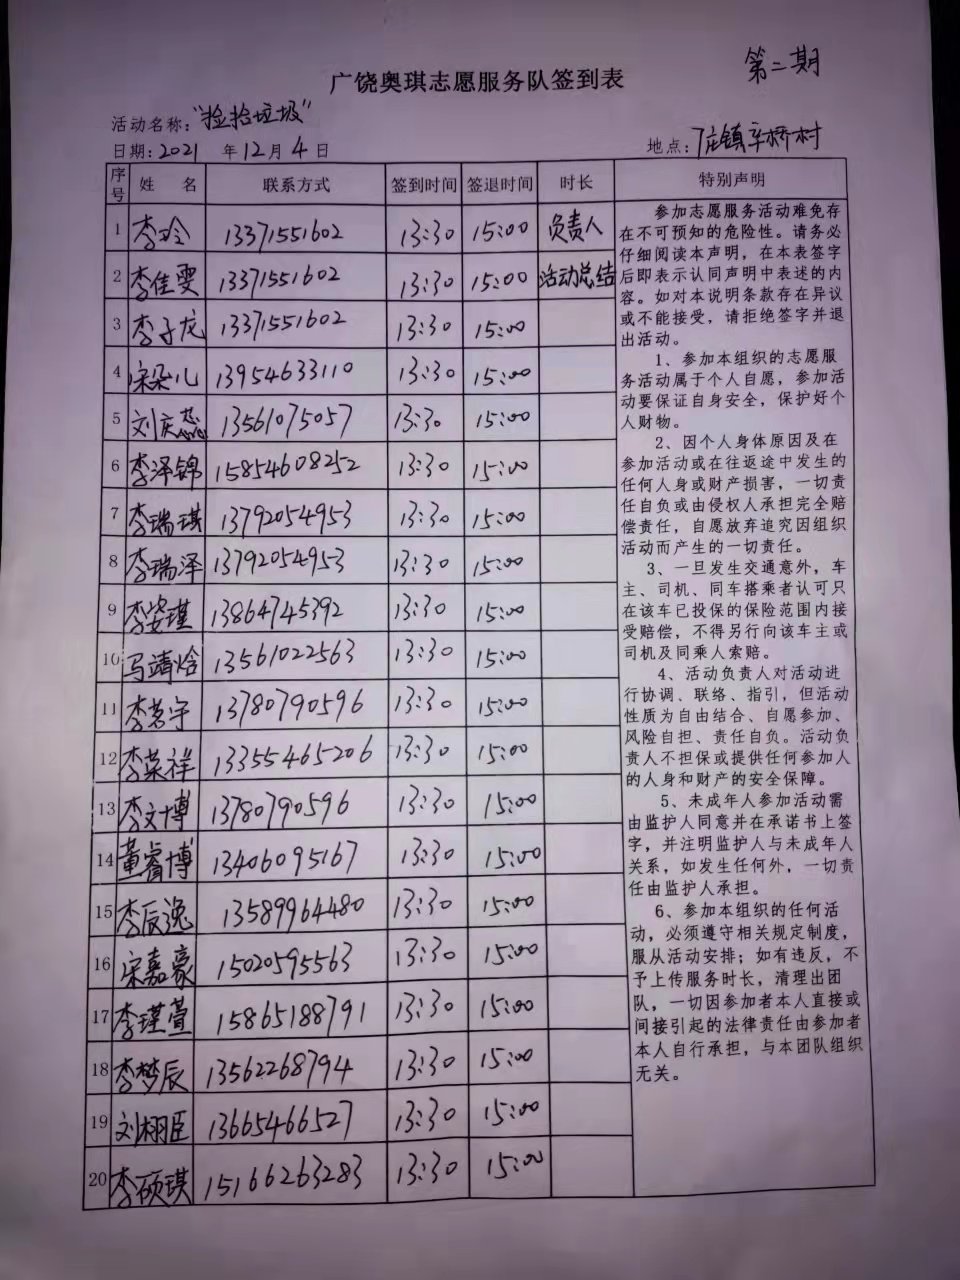 第二期
广饶奥琪志愿服务队签到表
活动名称："捡拾垃圾"
日期：2021 年12月4日
地点：丁庄镇辛桥村
序号 姓 名 联系方式 签到时间 签退时间 时长 特别声明
1 李玲 13371551602 13:30 15:00 负责人
2 李佳雯 13371551602 13:30 15:00 活动总结
3 李子龙 13371551602 13:30 15:00
4 宋朵儿 13954633110 13:30 15:00
5 刘庆蕊 13561075057 13:30 15:00
6 李泽锦 15854608252 13:30 15:00
7 李瑞琪 13792054953 13:30 15:00
8 李瑞泽 13792054953 13:30 15:00
9 李姿瑾 13864745392 13:30 15:00
10 马靖焓 13561022563 13:30 15:00
11 李茗宇 13780790596 13:30 15:00
12 李荣祥 13355465206 13:30 15:00
13 李文博 13780790596 13:30 15:00
14 董睿博 13406095167 13:30 15:00
15 李辰逸 13589964480 13:30 15:00
16 宋嘉豪 15020595563 13:30 15:00
17 李瑾萱 15865188791 13:30 15:00
18 李梦辰 13562268794 13:30 15:00
19 刘栩臣 13665466527 13:30 15:00
20 李硕琪 15166263283 13:30 15:00
参加志愿服务活动难免存
在不可预知的危险性。请务必
仔细阅读本声明，在本表签字
后即表示认同声明中表述的内
容。如对本说明条款存在异议
或不能接受，请拒绝签字并退
出活动。
1、参加本组织的志愿服
务活动属于个人自愿，参加活
动要保证自身安全，保护好个
人财物。
2、因个人身体原因及在
参加活动或在往返途中发生的
任何人身或财产损害，一切责
任自负或由侵权人承担完全赔
偿责任，自愿放弃追究因组织
活动而产生的一切责任。
3、一旦发生交通意外，车
主、司机、同车搭乘者认可只
在该车已投保的保险范围内接
受赔偿，不得另行向该车主或
司机及同乘人索赔。
4、活动负责人对活动进
行协调、联络、指引，但活动
性质为自由结合、自愿参加、
风险自担、责任自负。活动负
责人不担保或提供任何参加人
的人身和财产的安全保障。
5、未成年人参加活动需
由监护人同意并在承诺书上签
字，并注明监护人与未成年人
关系，如发生任何外，一切责
任由监护人承担。
6、参加本组织的任何活
动，必须遵守相关规定制度，
服从活动安排；如有违反，不
予上传服务时长，清理出团
队，一切因参加者本人直接或
间接引起的法律责任由参加者
本人自行承担，与本团队组织
无关。